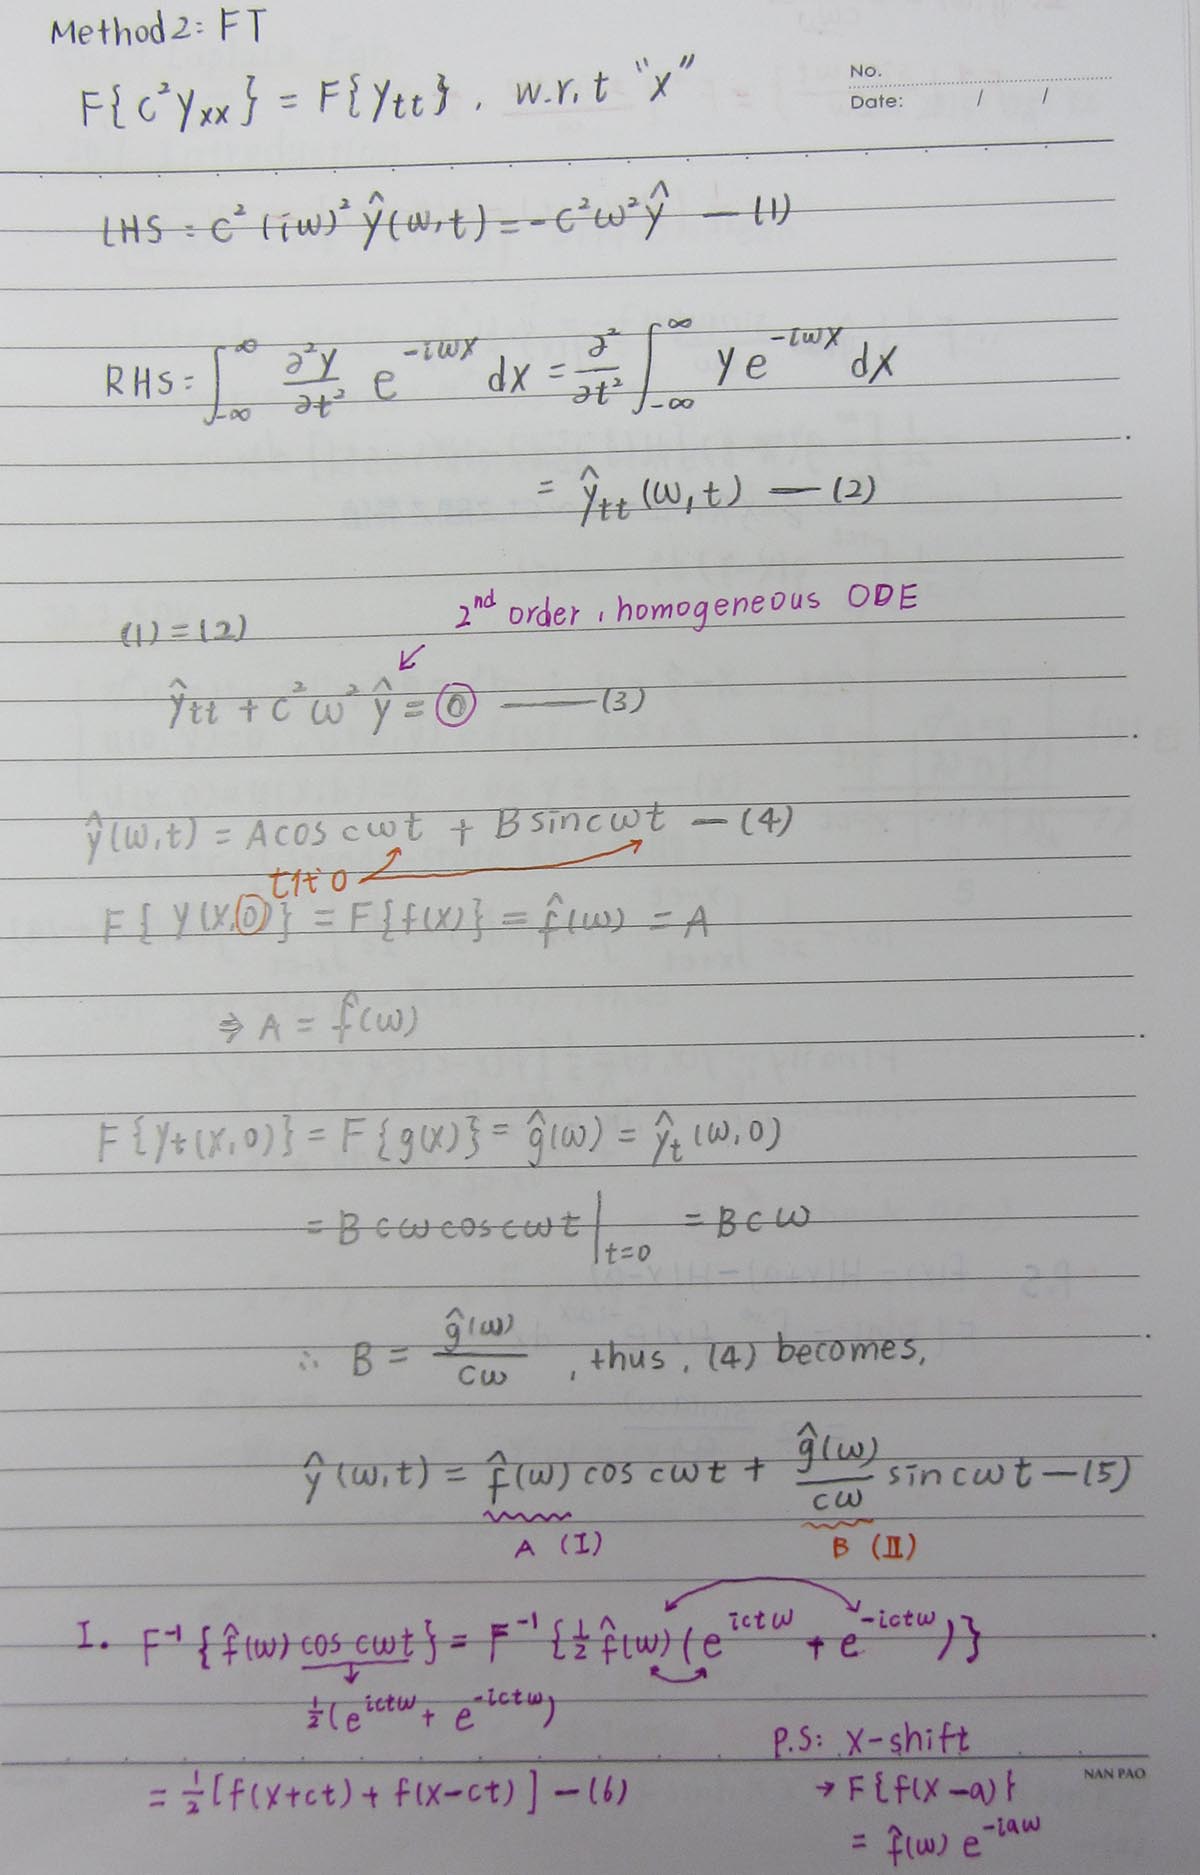 Method 2: FT
No.
Date: / /
F{c²y_xx} = F{y_tt}, w.r.t "x"
LHS = c²(iω)² ŷ(ω,t) = -c²ω²ŷ — (1)
RHS = ∫_{-∞}^{∞} ∂²y/∂t² e^{-iωx} dx = ∂²/∂t² ∫_{-∞}^{∞} y e^{-iωx} dx
= ŷ_tt (ω,t) — (2)
2nd order, homogeneous ODE
(1) = (2)
ŷ_tt + c²ω²ŷ = 0 — (3)
ŷ(ω,t) = A cos cωt + B sin cωt — (4)
t代0
F{y(x,0)} = F{f(x)} = f̂(ω) = A
⇒ A = f̂(ω)
F{y_t(x,0)} = F{g(x)} = ĝ(ω) = ŷ_t(ω,0)
= B cω cos cωt |_{t=0} = B cω
∴ B = ĝ(ω)/cω , thus, (4) becomes,
ŷ(ω,t) = f̂(ω) cos cωt + ĝ(ω)/cω sin cωt — (5)
A (I) B (II)
I. F⁻¹{f̂(ω) cos cωt} = F⁻¹{½ f̂(ω)(e^{ictω} + e^{-ictω})}
½(e^{ictω} + e^{-ictω})
P.S: x-shift
= ½[f(x+ct) + f(x-ct)] — (6)
→ F{f(x-a)}
= f̂(ω) e^{-iaω}
NAN PAO